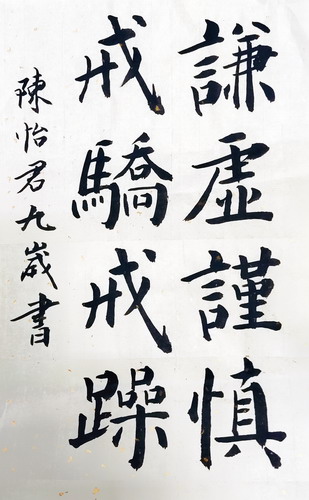 謙虛謹慎
戒驕戒躁
陳怡君九歲書